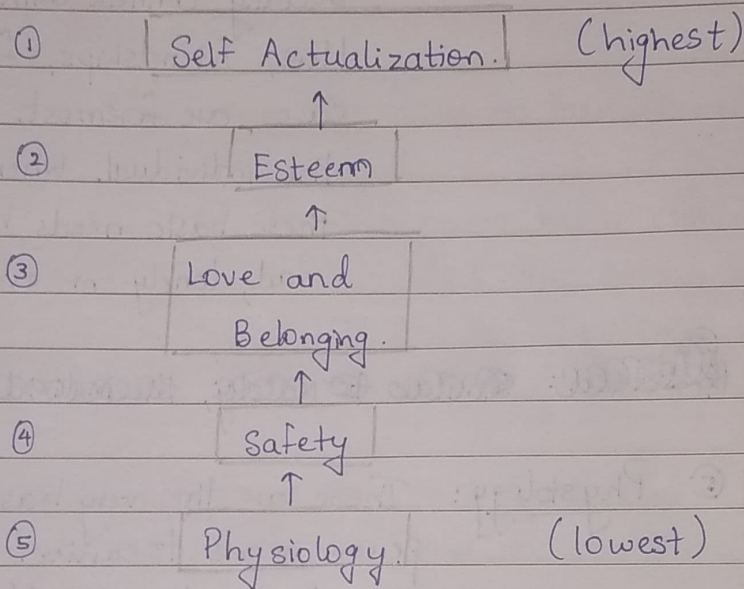 ① Self Actualization. (highest)
↑
② Esteem
↑
③ Love and
Belonging.
↑
④ Safety
↑
⑤ Physiology. (lowest)